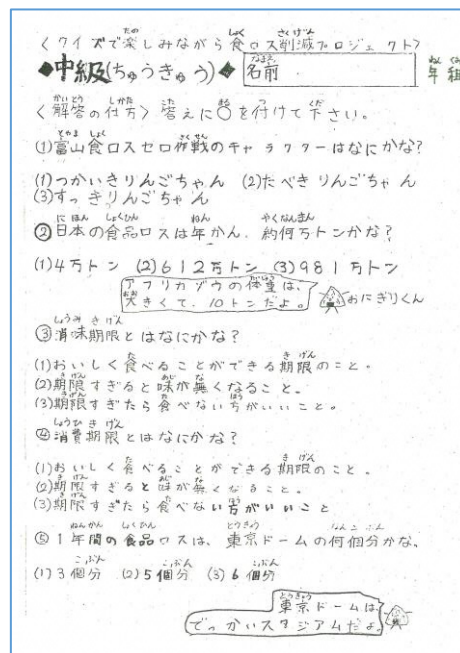 〈クイズで楽しみながら食ロス削減プロジェクト〉
◆中級(ちゅうきゅう)◆ 名前 年 組
〈解答の仕方〉答えに○を付けて下さい。
①富山食ロスゼロ作戦のキャラクターはなにかな?
(1)つかいきりんごちゃん (2)たべきりんごちゃん
(3)すっきりんごちゃん
②日本の食品ロスは年かん、約何万トンかな?
(1)4万トン (2)612万トン (3)981万トン
アフリカゾウの体重は、
大きくて、10トンだよ。
おにぎりくん
③消味期限とはなにかな?
(1)おいしく食べることができる期限のこと。
(2)期限すぎると味が無くなること。
(3)期限すぎたら食べない方がいいこと。
④消費期限とはなにかな?
(1)おいしく食べることができる期限のこと。
(2)期限すぎると味が無くなること。
(3)期限すぎたら食べない方がいいこと
⑤1年間の食品ロスは、東京ドームの何個分かな。
(1)3個分 (2)5個分 (3)6個分
東京ドームは、
でっかいスタジアムだよ。